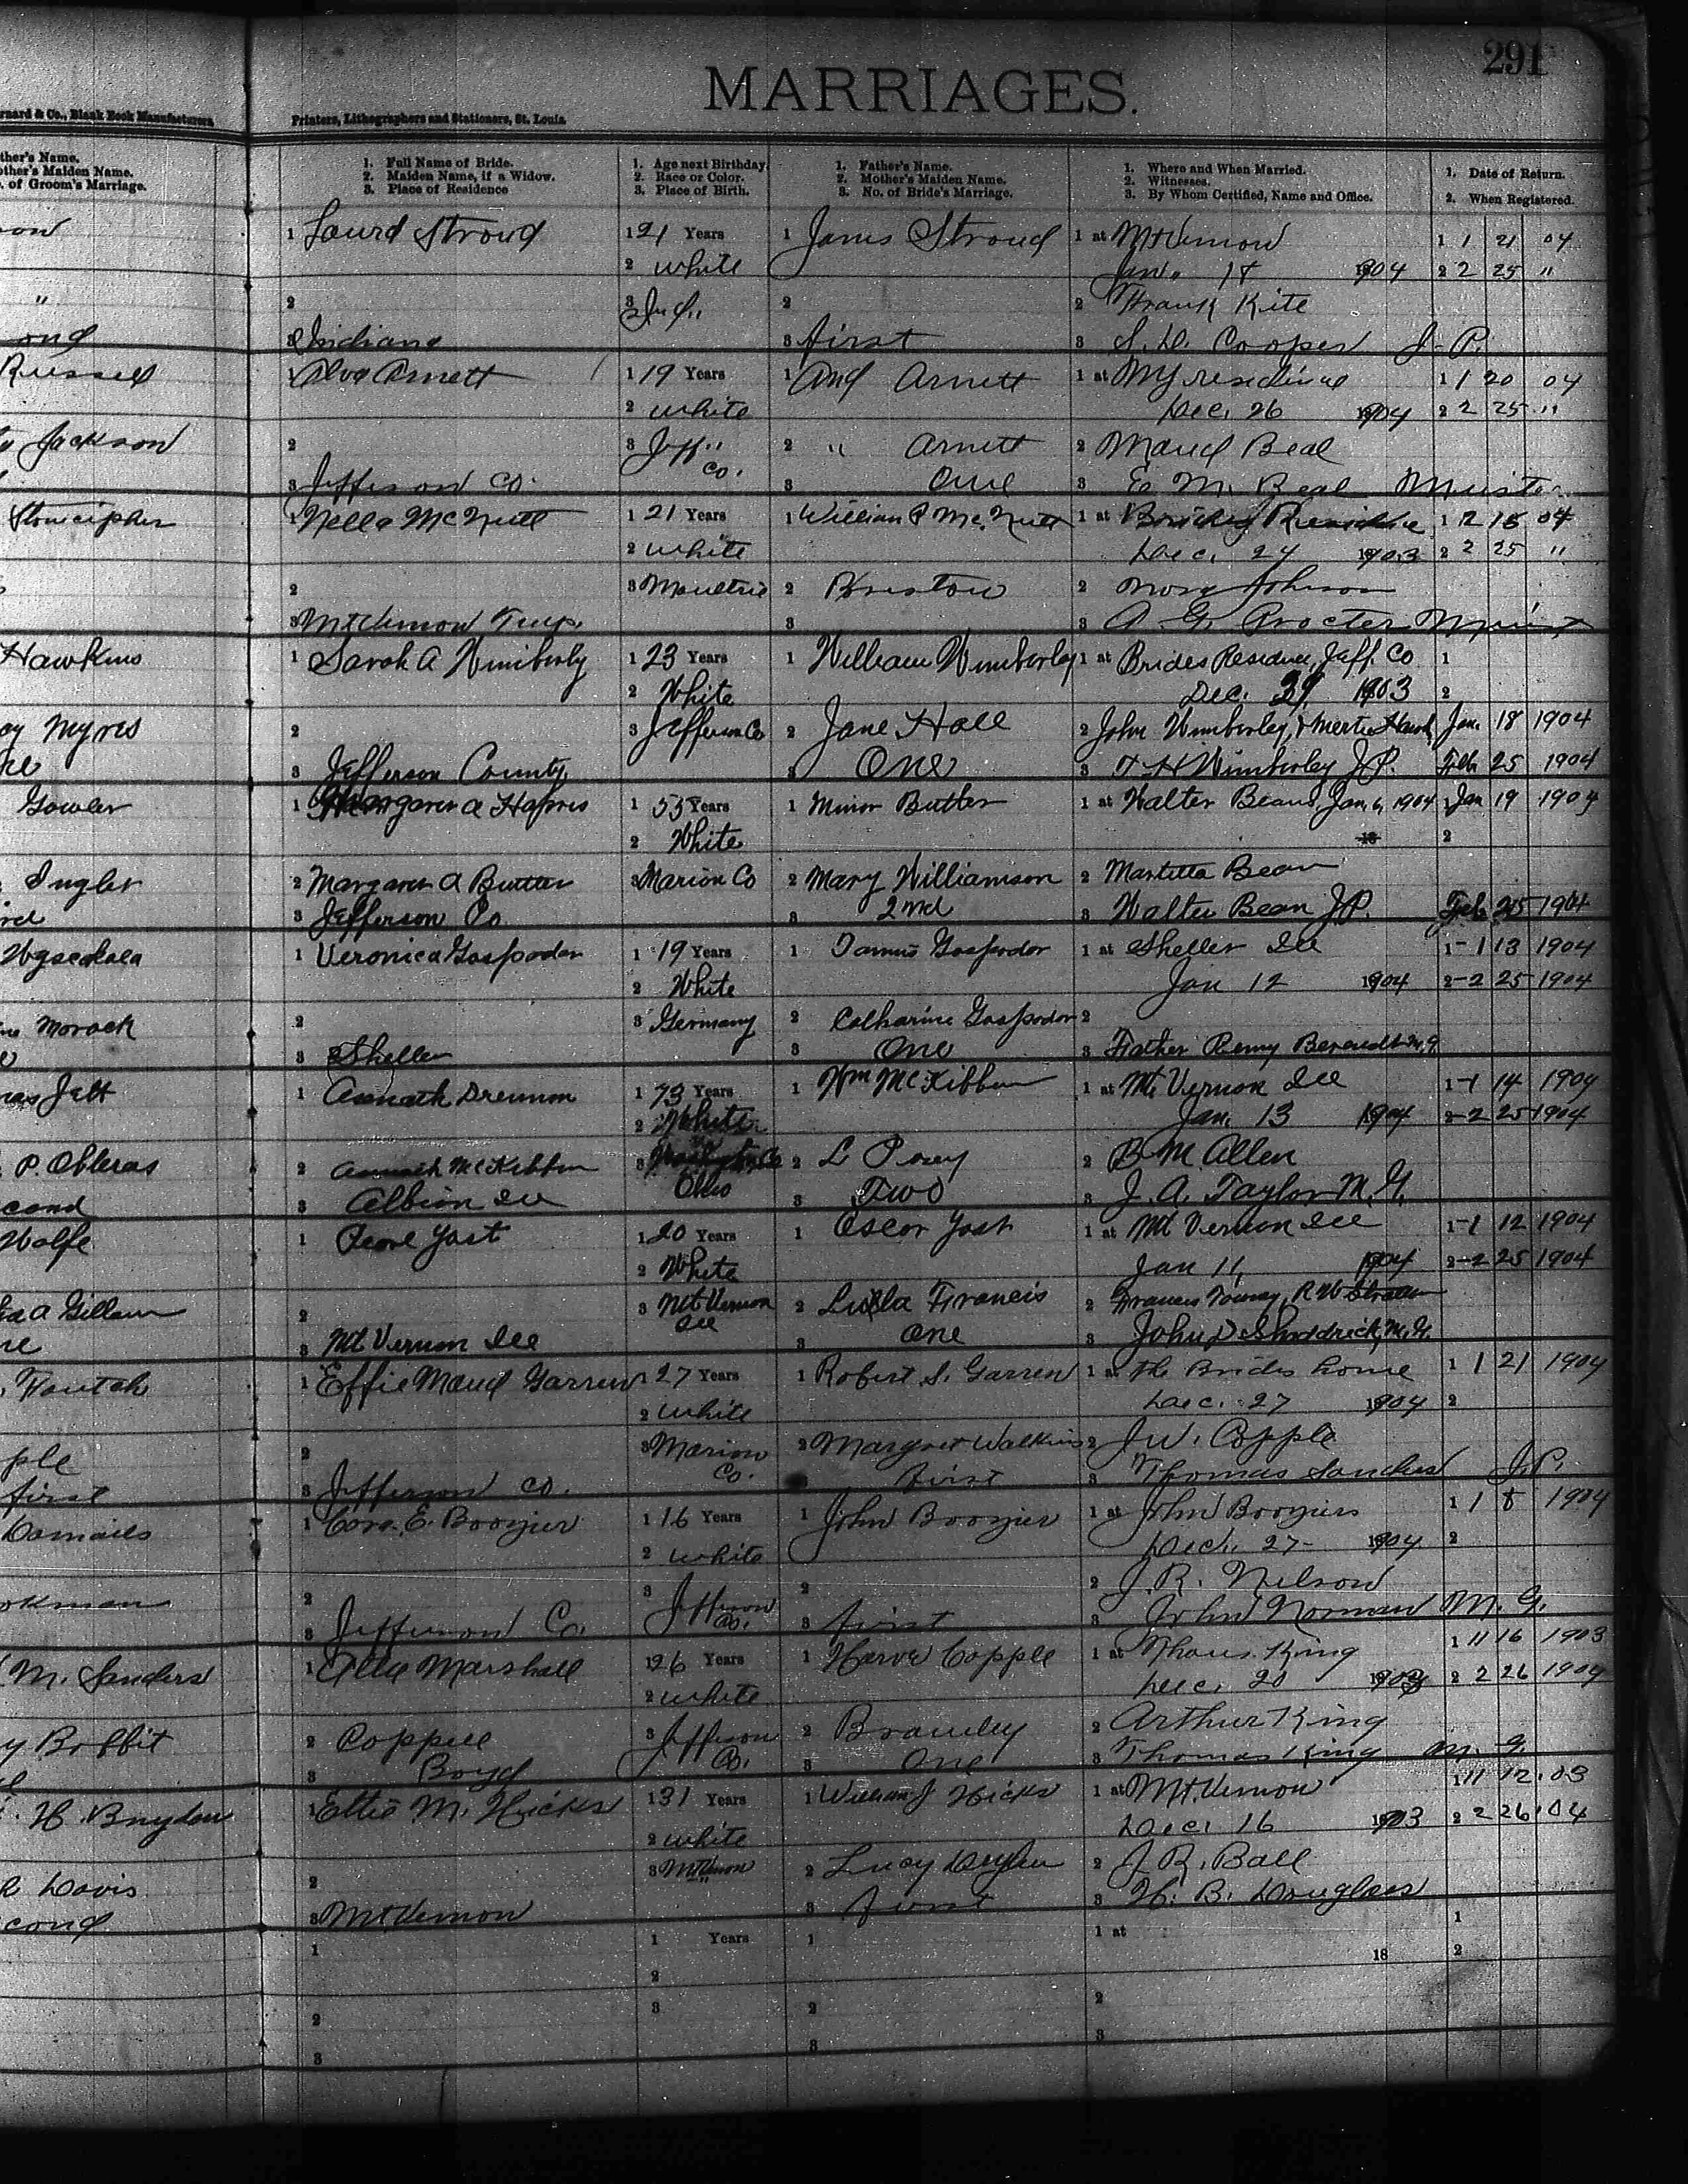 291
MARRIAGES.
rnard & Co., Blank Book Manufacturers,
Printers, Lithographers and Stationers, St. Louis.
ther's Name.
other's Maiden Name.
. of Groom's Marriage.
1. Full Name of Bride.
2. Maiden Name, if a Widow.
3. Place of Residence
1. Age next Birthday
2. Race or Color.
3. Place of Birth.
1. Father's Name.
2. Mother's Maiden Name.
3. No. of Bride's Marriage.
1. Where and When Married.
2. Witnesses.
3. By Whom Certified, Name and Office.
1. Date of Return.
2. When Registered.
1 Stroud 1 21 Years 1 Stroud 1 at Mt Vernon 1 1 21 04
2 white Jan. 1904 2 2 25 "
" 2 3 Ind. 2 2 Frank Kite
ond 3 Indiana 3 first 3 S. D. Cooper J. P.
Russell 1 Alva Arnett 1 19 Years 1 And Arnett 1 at My residence 1 1 20 04
2 white Dec. 26 1904 2 2 25 "
Jackson 2 3 Jeff. Co. 2 " Arnett 2 Maud Beal
3 Jefferson Co. 3 One 3 E. M. Beal Minister
Stonecipher 1 Nella McNutt 1 21 Years 1 William P. McNutt 1 at Brides Residence 1 2 15 04
2 white Dec. 24 1903 2 2 25 "
2 3 Moultrie 2 2 Johnson
3 Mt Vernon Twp. 3 3 A. G. Procter Minist
Hawkins 1 Sarah A Wimberly 1 23 Years 1 William Wimberley 1 at Brides Residence, Jeff. Co 1
2 White Dec. 1903 2
ay Myres 2 3 Jefferson Co 2 Jane Hall 2 John Wimberley, & Jan. 18 1904
3 Jefferson County. 3 One 3 Wimberley J.P. Feb 25 1904
Gowler 1 Margaret A Harris 1 55 Years 1 Minor Butler 1 at Walter Beans, Jan. 6, 1904 1 Jan 19 1904
2 White 18 2
Ingler 2 Margaret A Butler 3 Marion Co 2 Mary Williamson 2 Martitta Bean
rd 3 Jefferson Co 3 2nd 3 Walter Bean J.P. Feb 25 1904
1 Veronica Gospodor 1 19 Years 1 Gospodor 1 at Sheller Ill 1-1 13 1904
2 White Jan 12 1904 2-2 25 1904
Morack 2 3 Germany 2 Catharine Gospodor 2
3 Sheller 3 One 3 Father Remy Berendt M.G.
1 Drennon 1 73 Years 1 Wm McKibben 1 at Mt Vernon Ill 1-1 14 1904
2 White Jan. 13 1904 2-2 25 1904
P. 2 McKibben 3 Ohio 2 L Posey 2 B M. Allen
cond 3 Albion Ill 3 Two 3 J. A. Taylor M.G.
Wolfe 1 Pearl Yost 1 20 Years 1 Oscar Yost 1 at Mt Vernon Ill 1-1 12 1904
2 White Jan 11, 1904 2-2 25 1904
a Gillam 2 3 Mt Vernon Ill 2 Luella Francis 2 Francis
ne 3 Mt Vernon Ill 3 One 3 John D Shaddrick, M.G.
1 Effie Maud Garren 1 27 Years 1 Robert S. Garren 1 at the Brides home 1 1 21 1904
2 white Dec. 27 1904 2
ple 2 3 Marion Co. 2 Margret Watkins 2 J W. Copple
first 3 Jefferson Co. 3 first 3 Thomas Sanders J.P.
1 Cora. E. Boozier 1 16 Years 1 John Boozier 1 at John Booziers 1 1 8 1904
2 white Dec. 27- 1904 2
okman 2 3 Jefferson Co. 2 2 J. R. Nelson
3 Jefferson Co. 3 first 3 John Norman M. G.
M. Sanders 1 Marshall 1 26 Years 1 Harve Copple 1 at Thos. King 1 11 16 1903
2 white Dec. 20 1903 2 2 26 1904
y Boffit 2 Copple 3 Jefferson Co. 2 2 Arthur King
3 Boyd 3 One 3 Thomas King M. G.
H. Brydon 1 Ettie M. Hicks 1 31 Years 1 William J Hicks 1 at Mt. Vernon 1 11 12 03
2 white Dec. 16 1903 2 2 26 04
Davis 2 3 Mt Vernon 2 Lucy 2 J. R. Ball
cond 3 Mt Vernon 3 first 3 H. B. Douglass
1 1 Years 1 1 at 1
2 18 2
2 3 2 2
3 3 3